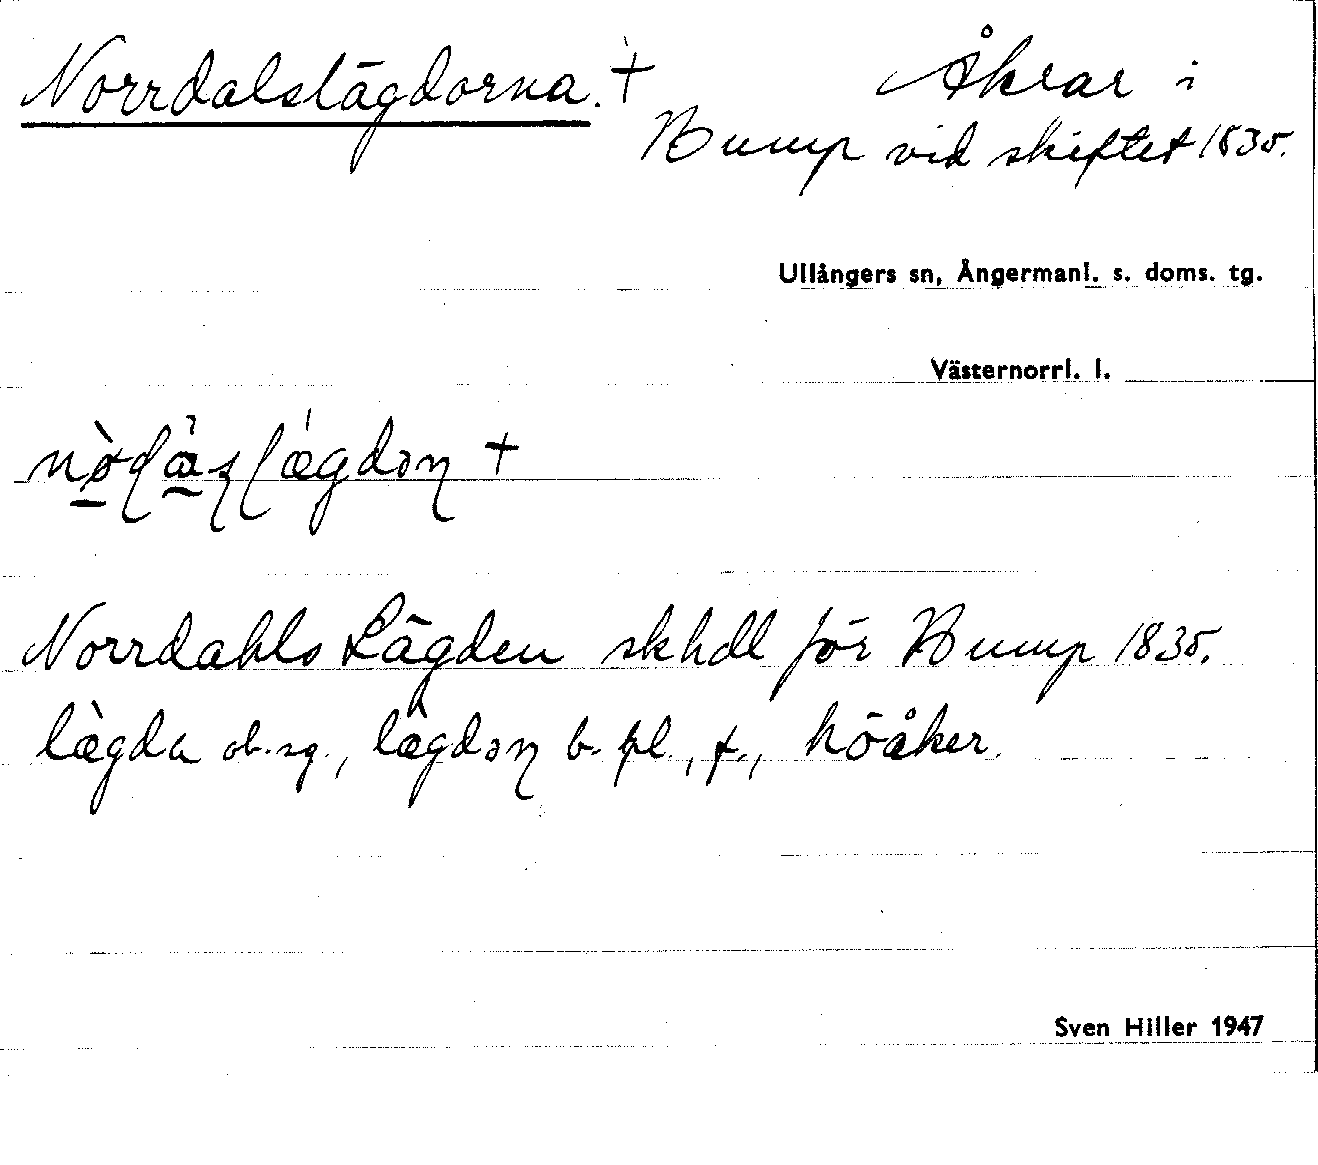 Norrdalslägdorna. + Åkrar i
Bump vid skiftet 1835.
Ullångers sn, Ångermanl. s. doms. tg.
Västernorrl. l.
Norrdahls Lägden skhdl för Bump 1835.
lägda ob. sg., lägdəɳ b. pl., f., höåker.
Sven Hiller 1947